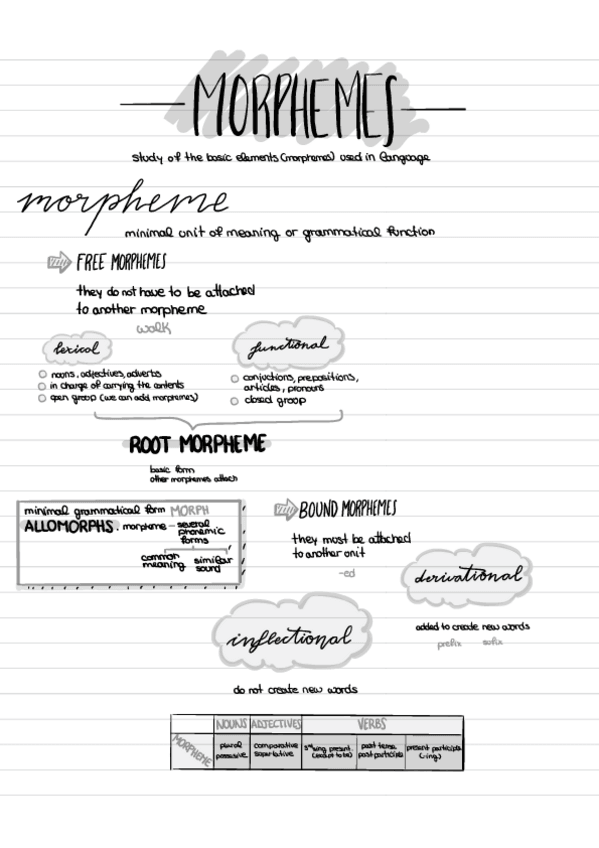 MORPHEMES
study of the basic elements (morphemes) used in language
morpheme
minimal unit of meaning or grammatical function
FREE MORPHEMES
they do not have to be attached
to another morpheme
walk
lexical
nouns, adjectives, adverbs
in charge of carrying the contents
open group (we can add morphemes)
functional
conjuctions, prepositions,
articles, pronouns
closed group
ROOT MORPHEME
basic form
other morphemes attach
minimal grammatical form MORPH
ALLOMORPHS. morpheme - several
phonemic
forms
common
meaning
similar
sound
BOUND MORPHEMES
they must be attached
to another unit
-ed
derivational
added to create new words
prefix sufix
inflectional
do not create new words
NOUNS ADJECTIVES VERBS
MORPHEME
plural
possessive
comparative
superlative
present
(except to be)
past tense
past participle
present participle
(-ing)